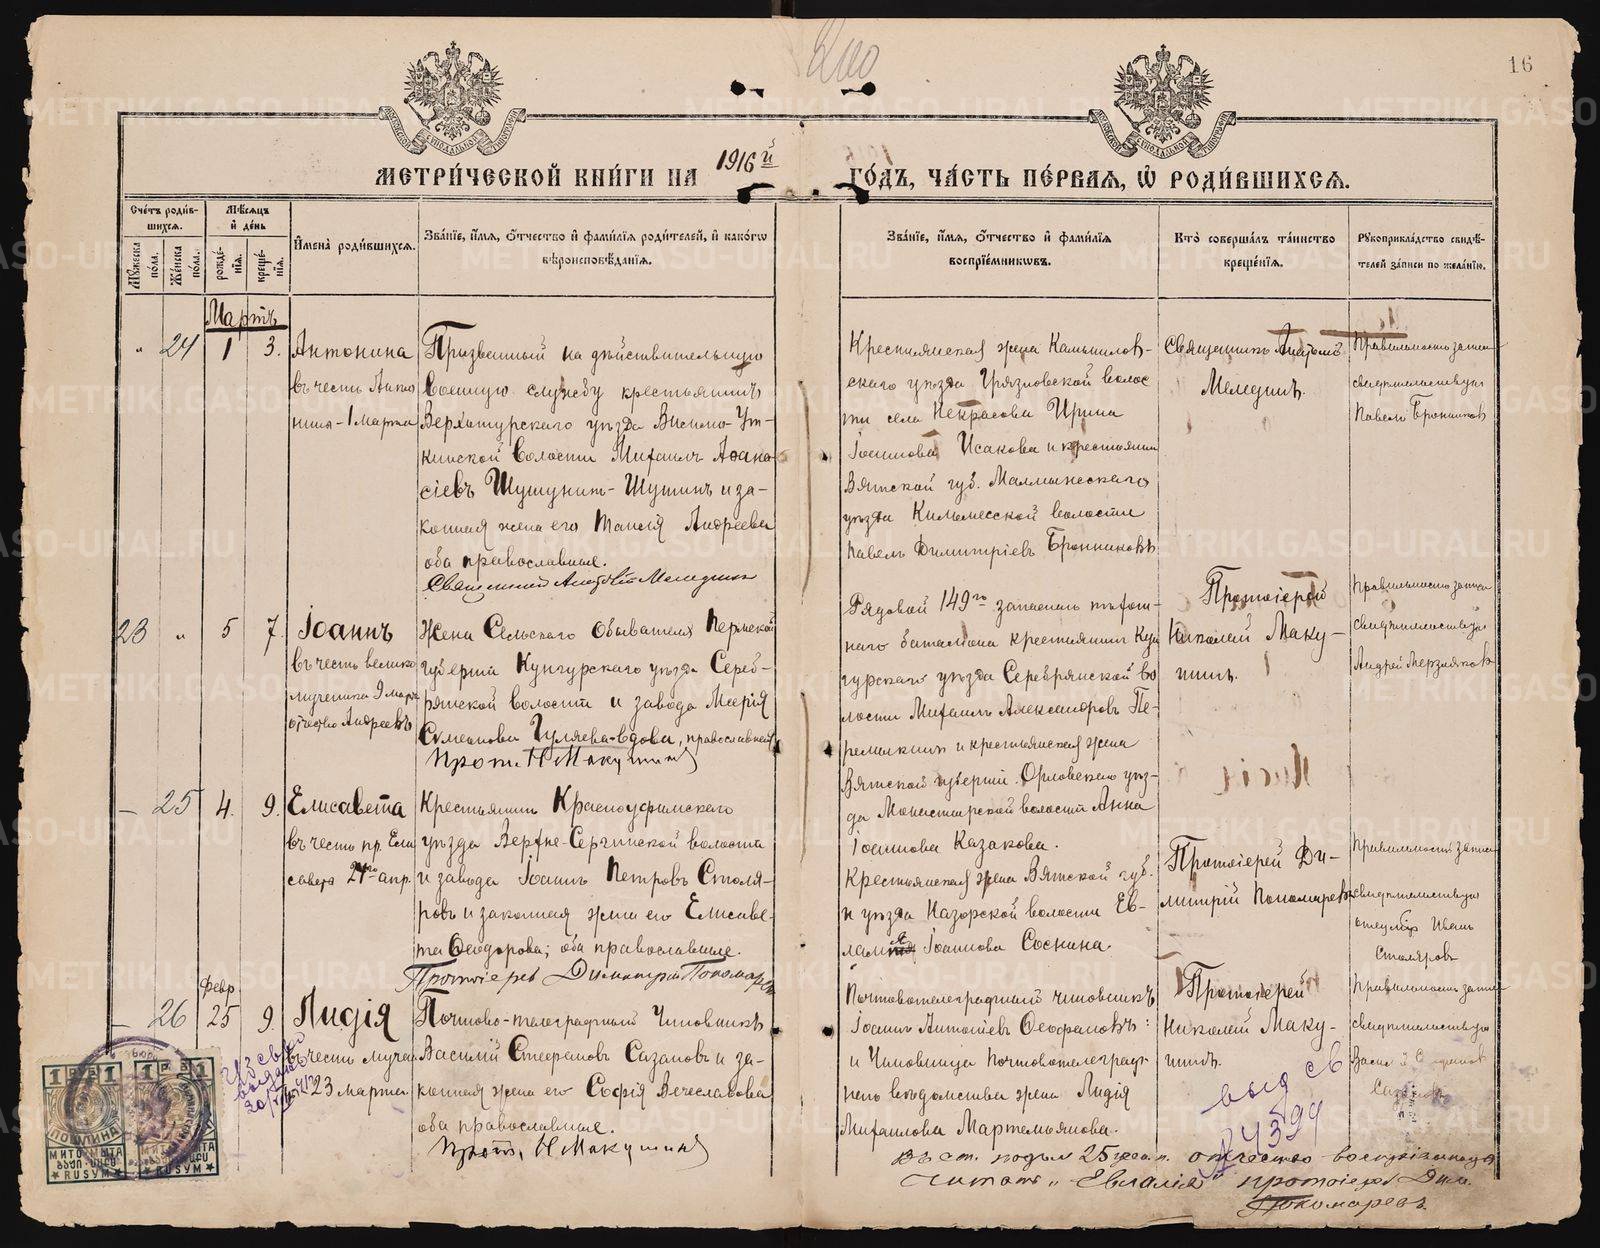 16
МЕТРИЧЕСКОЙ КНИГИ НА 1916й ГОДЪ, ЧАСТЬ ПЕРВАЯ, Ѡ РОДИВШИХСЯ.
Счетъ родившихся.
Мужеска пола.
Женска пола.
Мѣсяцъ и день
рожденія.
крещенія.
Имена родившихся.
Званіе, имя, отчество и фамилія родителей, и какогѡ вѣроисповѣданія.
Званіе, имя, отчество и фамилія воспріемниковъ.
Кто совершалъ таинство крещенія.
Рукоприкладство свидѣтелей записи по желанію.
Мартъ
" 24 1 3.
Антонина
въ честь Анто
нины - 1 марта
Призванный на дѣйствительную
военную службу крестьянинъ
Верхотурскаго уѣзда Висимо-Ут-
кинской волости Михаилъ Аѳана-
сіевъ Шушунинъ-Шутинъ и за-
конная жена его Таисія Андреева
оба православные.
Священникъ Анатолій Мелединъ
Крестьянская жена Камышлов-
скаго уѣзда Грязновской волос
ти села Некрасова Ирина
Іоаннова Исакова и крестьянинъ
Вятской губ. Малмыжскаго
уѣзда Кильмесской волости
Павелъ Димитріевъ Бронниковъ
Священникъ Анатолій
Мелединъ.
Правильность записи
свидѣтельствую
Павелъ Бронников
23 " 5 7.
Іоаннъ
въ честь велико
мученика 9 мар
отчество Андреевъ
Жена Сельскаго Обывателя Пермской
губерніи Кунгурскаго уѣзда Сереб-
рянской волости и завода Марія
Симеонова Гуляева-вдова, православная
Прот. Н Макушинъ
Рядовой 149го запаснаго пѣхот-
наго баталіона крестьянинъ Кун
гурскаго уѣзда Серебрянской во
лости Михаилъ Александровъ Пе-
ремыкинъ и крестьянская жена
Вятской губерніи Орловскаго уѣз-
да Монастырской волости Анна
Іоаннова Казакова.
Протоіерей
Николай Маку-
шинъ.
Правильность записи
свидѣтельствую
Андрей Мерзляков
— 25 4. 9.
Елисавета
въ честь пр. Ели
савета 24го апр.
Крестьянинъ Красноуфимскаго
уѣзда Верхне-Сергинской волости
и завода Іоаннъ Петровъ Столя-
ровъ и законная жена его Елисаве-
та Ѳеодорова; оба православные.
Протоіерей Димитрій Пономарев
Крестьянская жена Вятской губ.
и уѣзда Назорской волости Ев-
Іоаннова Соснина.
Протоіерей Ди-
митрій Пономаревъ
Правильность записи
свидѣтельствую
Иванъ
Столяровъ
Февр
— 26 25 9.
Лидія
въ честь мучен
23 марта
Почтово-телеграфный Чиновникъ
Василій Стефановъ Сазановъ и за-
конная жена его Софія Вечеславова
оба православные.
Прот. Н Макушинъ
Почтовотелеграфный чиновникъ
Іоаннъ Антоніевъ Ѳеофановъ:
и Чиновница почтовотелеграф-
наго вѣдомства жена Лидія
Михаилова Мартемьянова.
Протоіерей
Николай Маку-
шинъ.
Правильность записи
свидѣтельствую
выд св
№ 4399
Въ ст. подъ № 25 отчество воспріемницы
читать "Евлалія" протоіерей Дим.
Пономаревъ.
1 РУБ 1
1 РУБ 1
ПОШЛИНА
МИТО МЫТА
RUSYM
RUSYM
METRIKI.GASO-URAL.RU